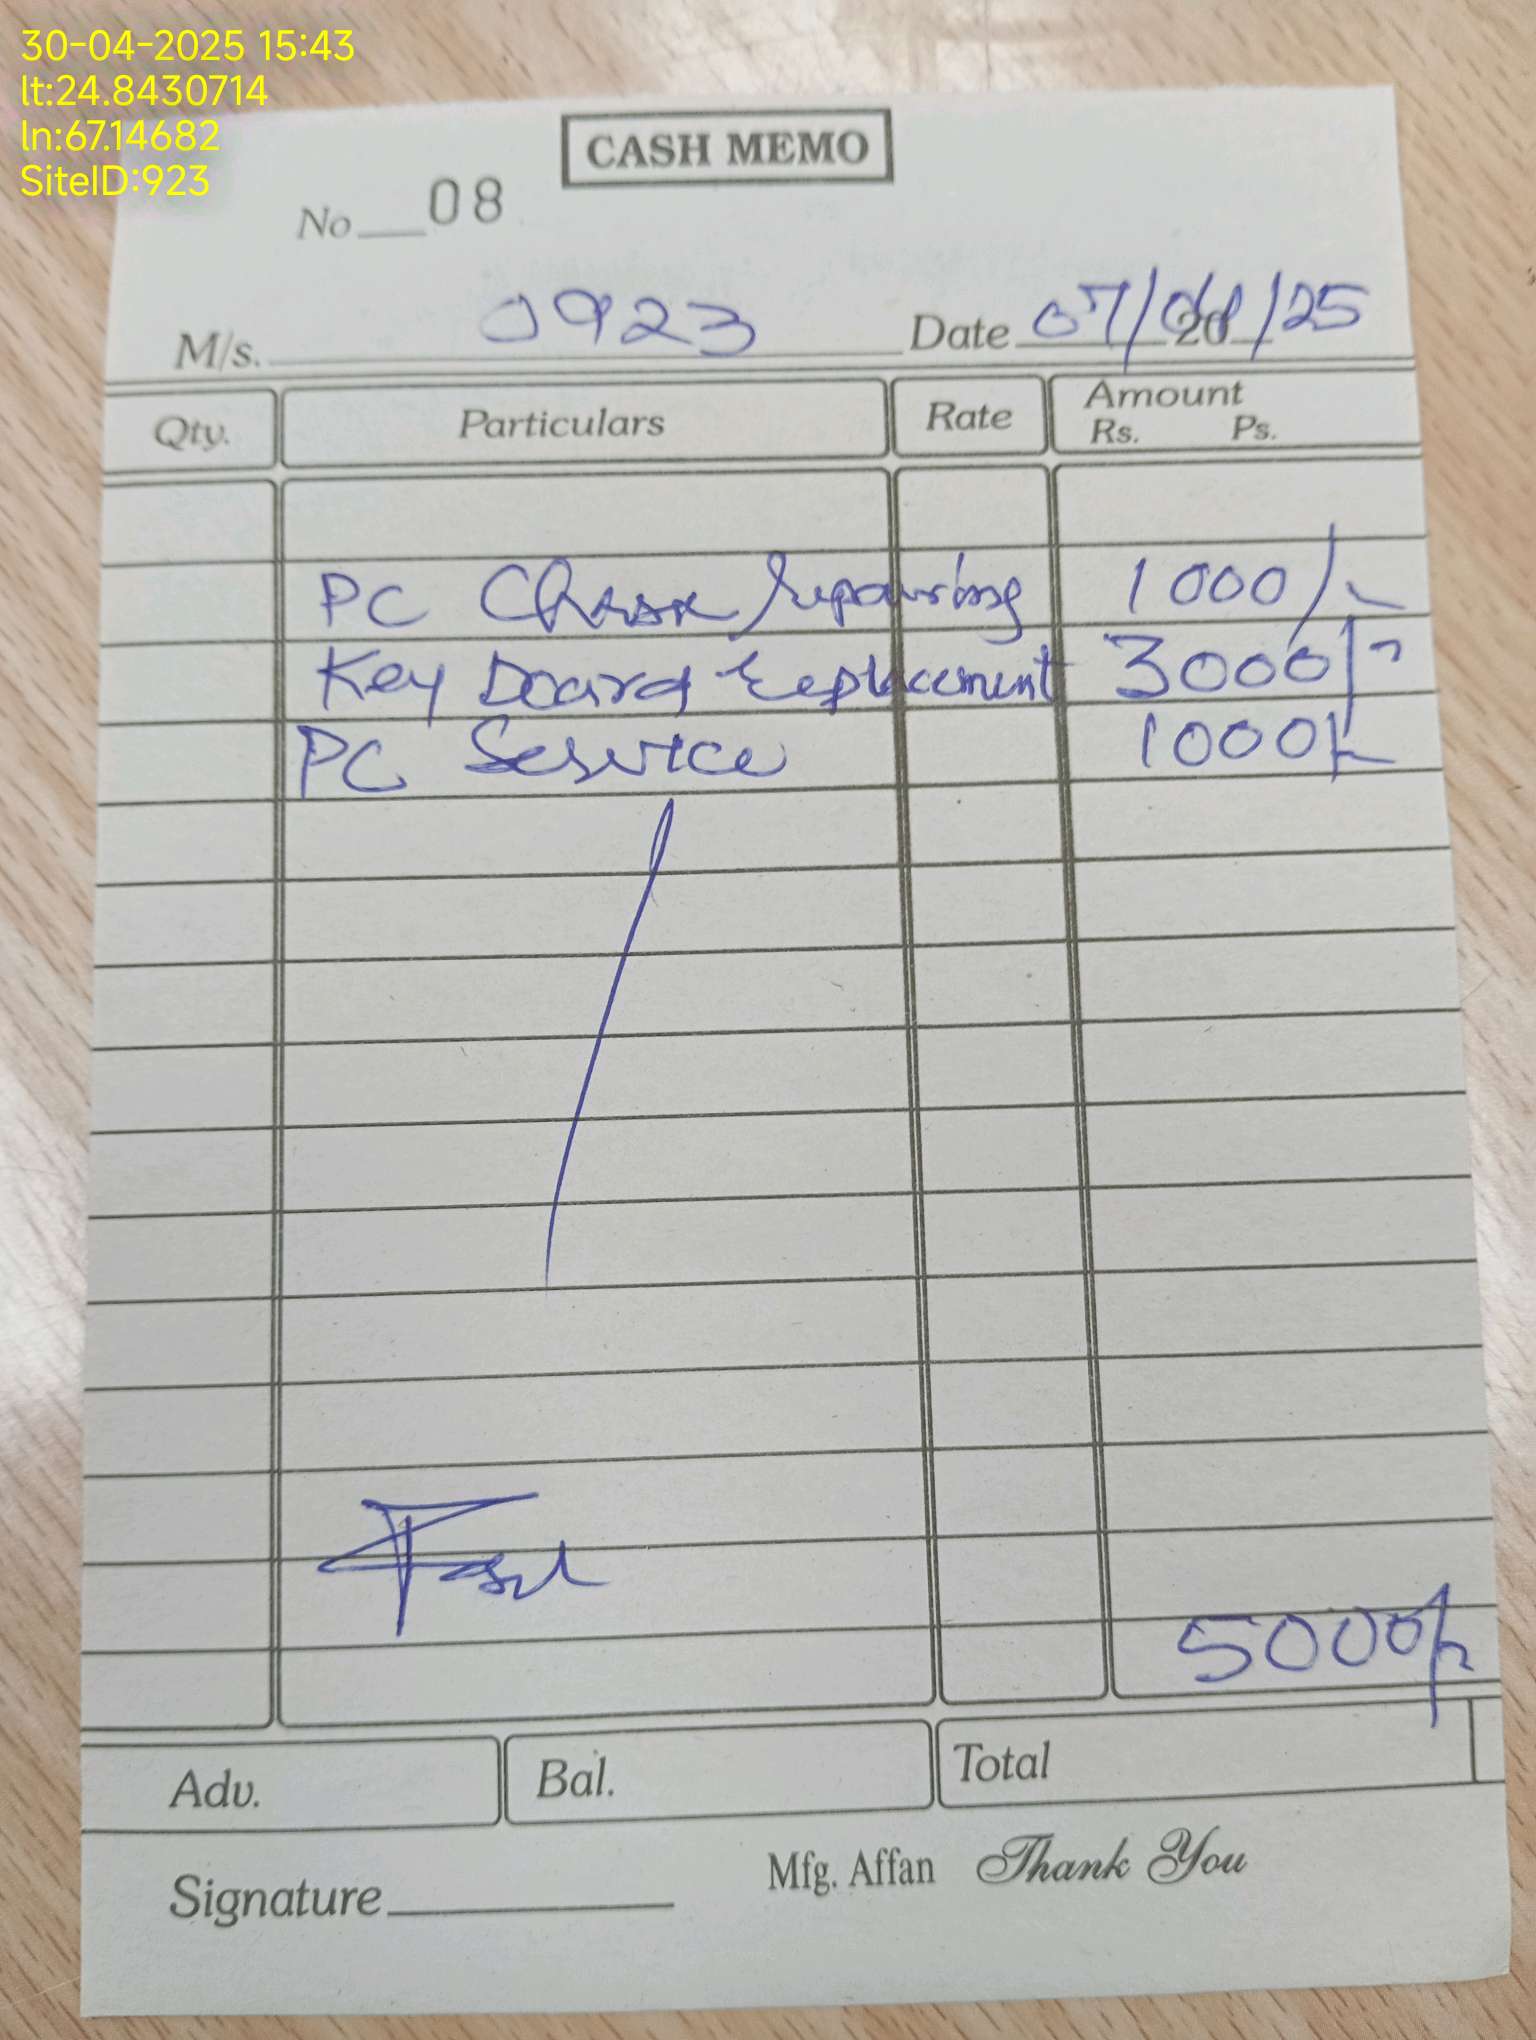 30-04-2025 15:43
lt:24.8430714
ln:67.14682
SiteID:923
CASH MEMO
No 08
M/s. 0923 Date 07/04/25
Qty. Particulars Rate Amount Rs. Ps.
PC repairing 1000/-
Key Board replacement 3000/-
PC Service 1000/-
5000/-
Adv. Bal. Total
Signature
Mfg. Affan Thank You